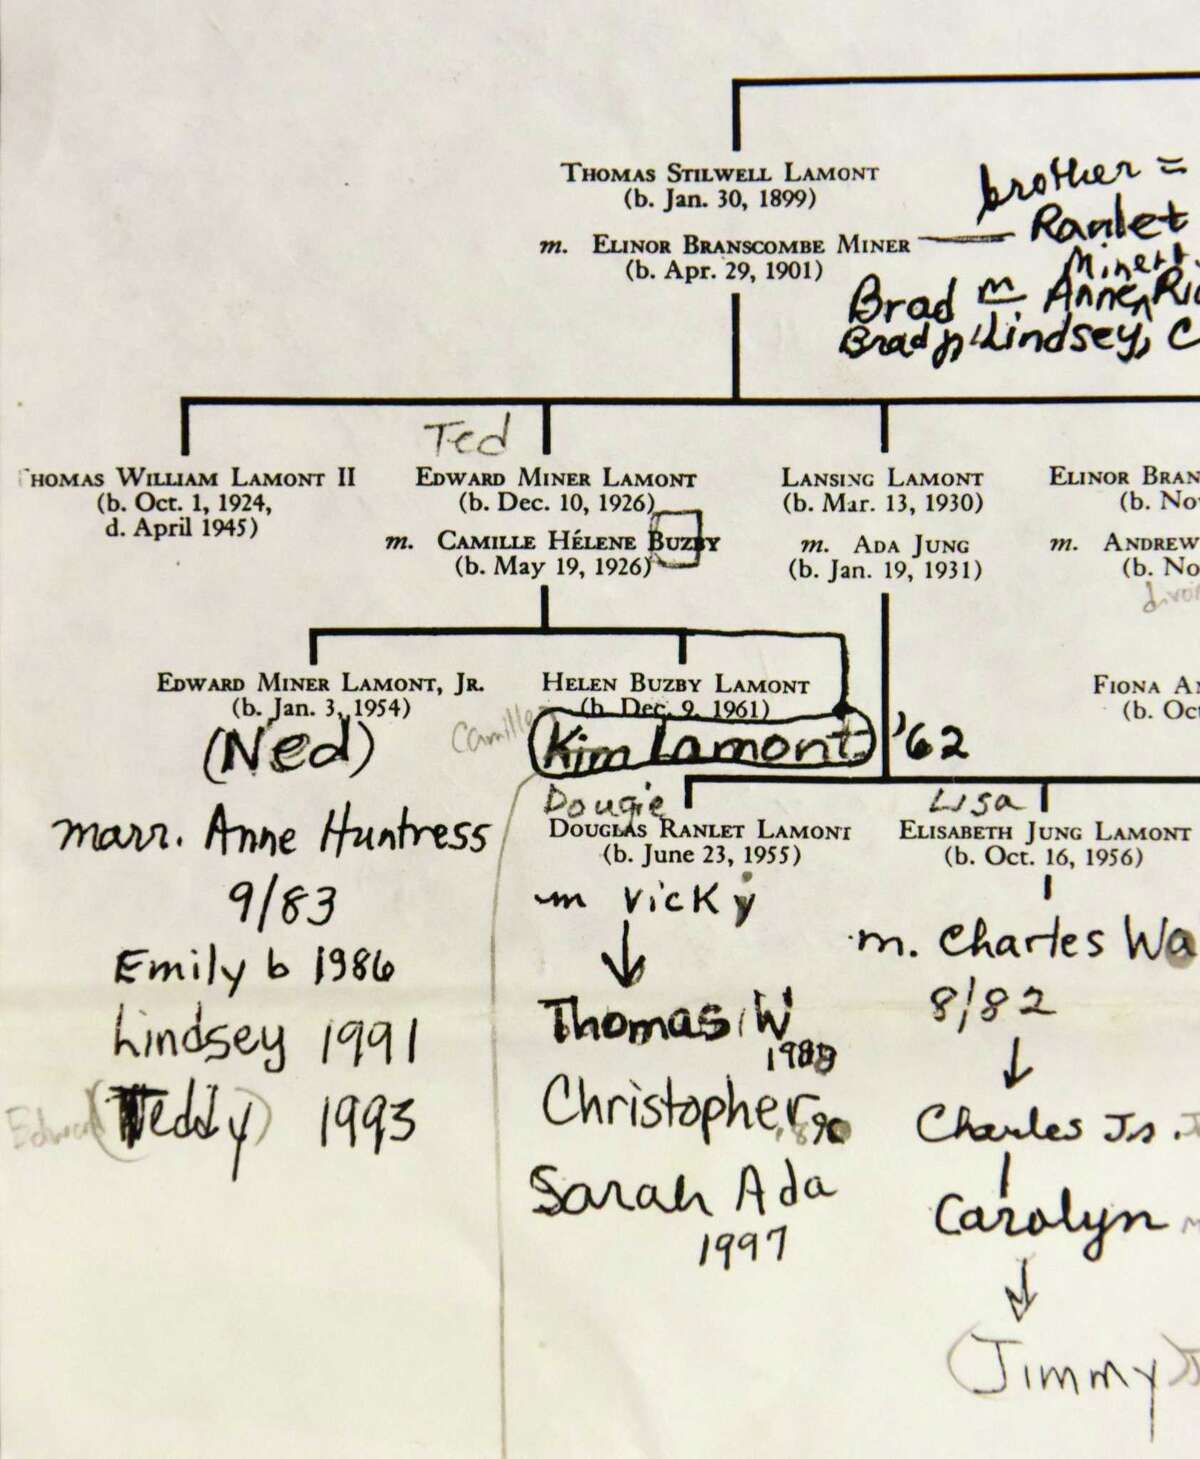 THOMAS STILWELL LAMONT
(b. Jan. 30, 1899)
m. ELINOR BRANSCOMBE MINER
(b. Apr. 29, 1901)
brother =
Ranlet
Miner
Brad m Anne,
Brad jr, Lindsey, C
Ted
HOMAS WILLIAM LAMONT II
(b. Oct. 1, 1924,
d. April 1945)
EDWARD MINER LAMONT
(b. Dec. 10, 1926)
m. CAMILLE HÉLENE BUZBY
(b. May 19, 1926)
LANSING LAMONT
(b. Mar. 13, 1930)
m. ADA JUNG
(b. Jan. 19, 1931)
ELINOR BRAN
(b. No
m. ANDREW
(b. No
EDWARD MINER LAMONT, JR.
(b. Jan. 3, 1954)
(Ned)
marr. Anne Huntress
9/83
Emily b 1986
Lindsey 1991
Edward (Teddy) 1993
HELEN BUZBY LAMONT
(b. Dec. 9, 1961)
Camille
Kim Lamont '62
FIONA A
(b. Oct
Dougie
DOUGLAS RANLET LAMONT
(b. June 23, 1955)
m Vicky
Thomas W
Christopher
Sarah Ada
1997
Lisa
ELISABETH JUNG LAMONT
(b. Oct. 16, 1956)
m. Charles Wa
8/82
Charles Jr.
Carolyn
(Jimmy)